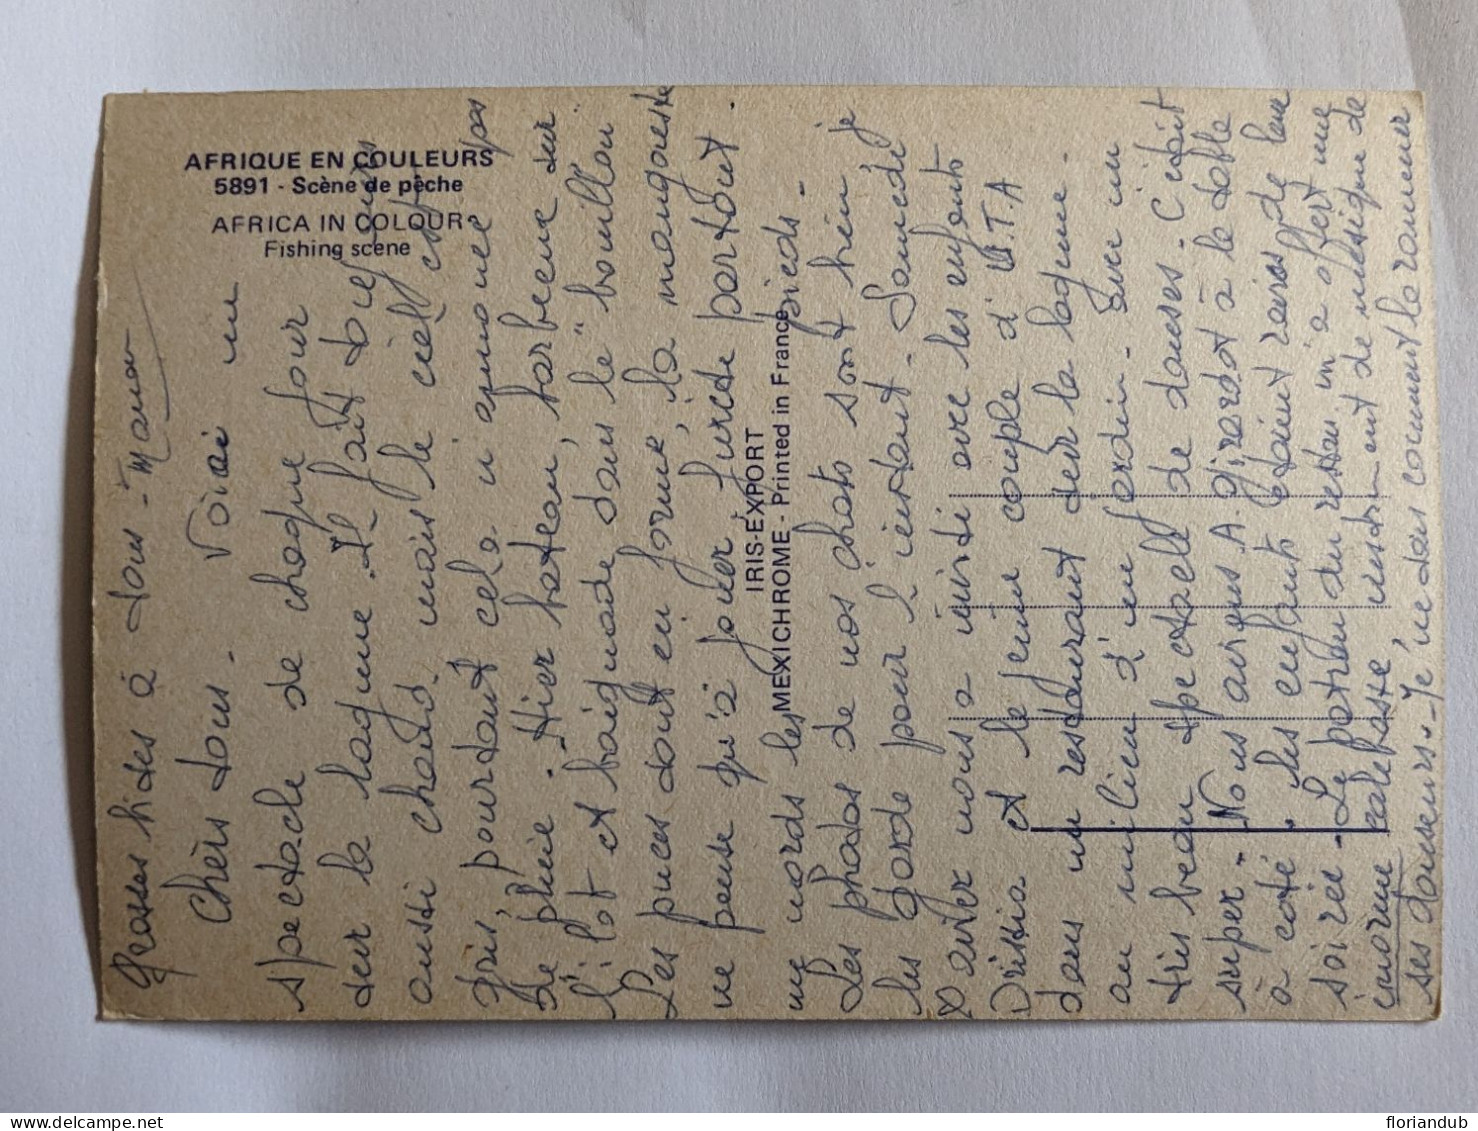 AFRIQUE EN COULEURS
5891 - Scène de pêche
AFRICA IN COLOUR
Fishing scene
IRIS-EXPORT
MEXICHROME - Printed in France
Grosses bises à tous - Manou
Chers tous - Voici un
spectacle de chaque jour
sur la lagune. Il fait toujours
aussi chaud. mais le ciel est
gris, pourtant cela n'annonce pas
de pluie. Hier bateau, barbecue sur
l'îlot et baignade dans le "bouillon
Les puces sont en forme, la mangouste
ne pense qu'à jouer, furète partout.
me mords les pieds -
Les photos de nos chats sont bien je
les garde pour l'instant - Samedi
Xavier nous a invité avec les enfants
et le jeune couple d'U.T.A
dans un restaurant sur la lagune.
au milieu d'un jardin - avec un
très beau spectacle de danses. C'était
super. Nous avions A. Girardot à la table
à coté. les enfants étaient ravis de leur
soirée - Le patron du restau m'a offert une
énorme calebasse, instrument de musique de
ses danseurs - Je ne sais comment la ramener
floriandub